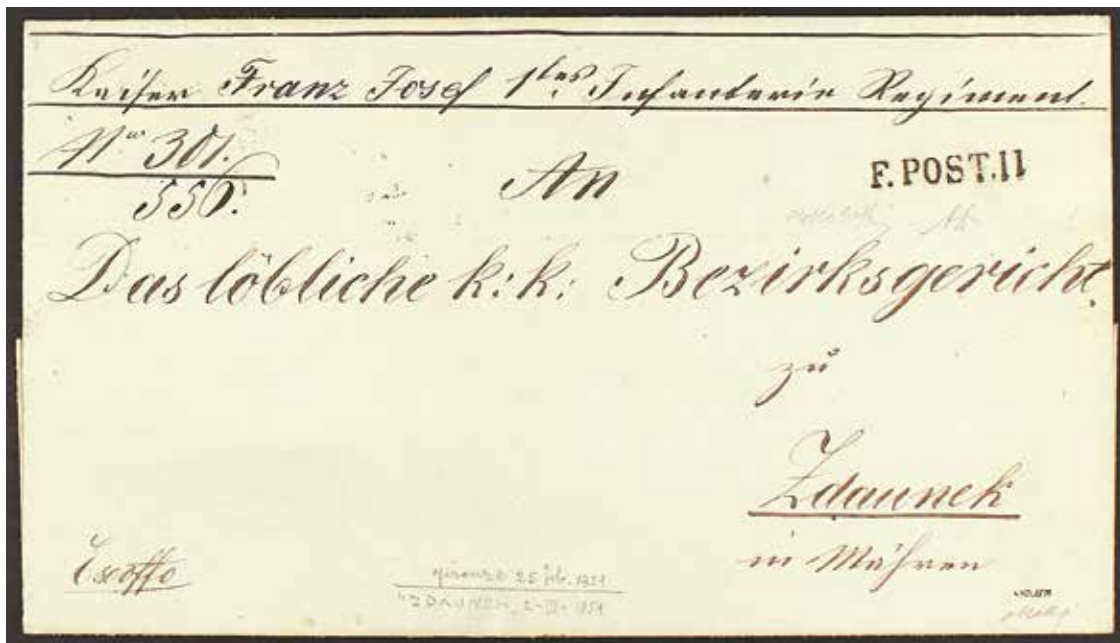 Kaiser Franz Josef 1tes Infanterie Regiment.
Nro 301.
556.
An
F. POST. II
Das löbliche k: k: Bezirksgericht.
zu
Zdaunek
in Mähren
Exoffo
25 1851